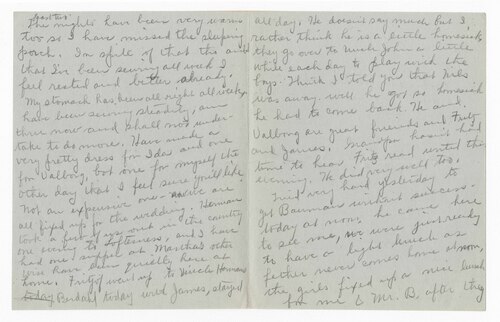 The nights have been very warm
too so I have missed the sleeping
porch. In spite of that and
that I've been sewing all week I
feel rested and better already.
My stomach has been all right all week,
have been sewing steadily, am
thru now and shall not under-
take to do more. Have made a
very pretty dress for Ida and one
for Valborg, but one for myself the
other day that I feel sure you'll like
Not an expensive one - we are
all fixed up for the wedding. Herman
took a few of us out in the country
one evening to and I have
had one supper at Martha's other
wise have been quietly here at
home. Fritz went up to Uncle Herman
today with James, stayed
all day. He doesn't say much but I
rather think he is a little homesick,
they go over to Uncle John a little
while each day to play with the
boys. Think I told you that Nels
was away, well he got so homesick
he had to come back. He and
Valborg are great friends and Fritz
and James. Grandpa hasn't had
time to hear Fritz read until this
evening. He did very well too.
Tried very hard yesterday to
get Bauman without success -
today at noon, he came here
to see me, we were just ready
to have a light lunch as
father never comes home at noon,
the girls fixed up a nice lunch
for me & Mr. B. after they